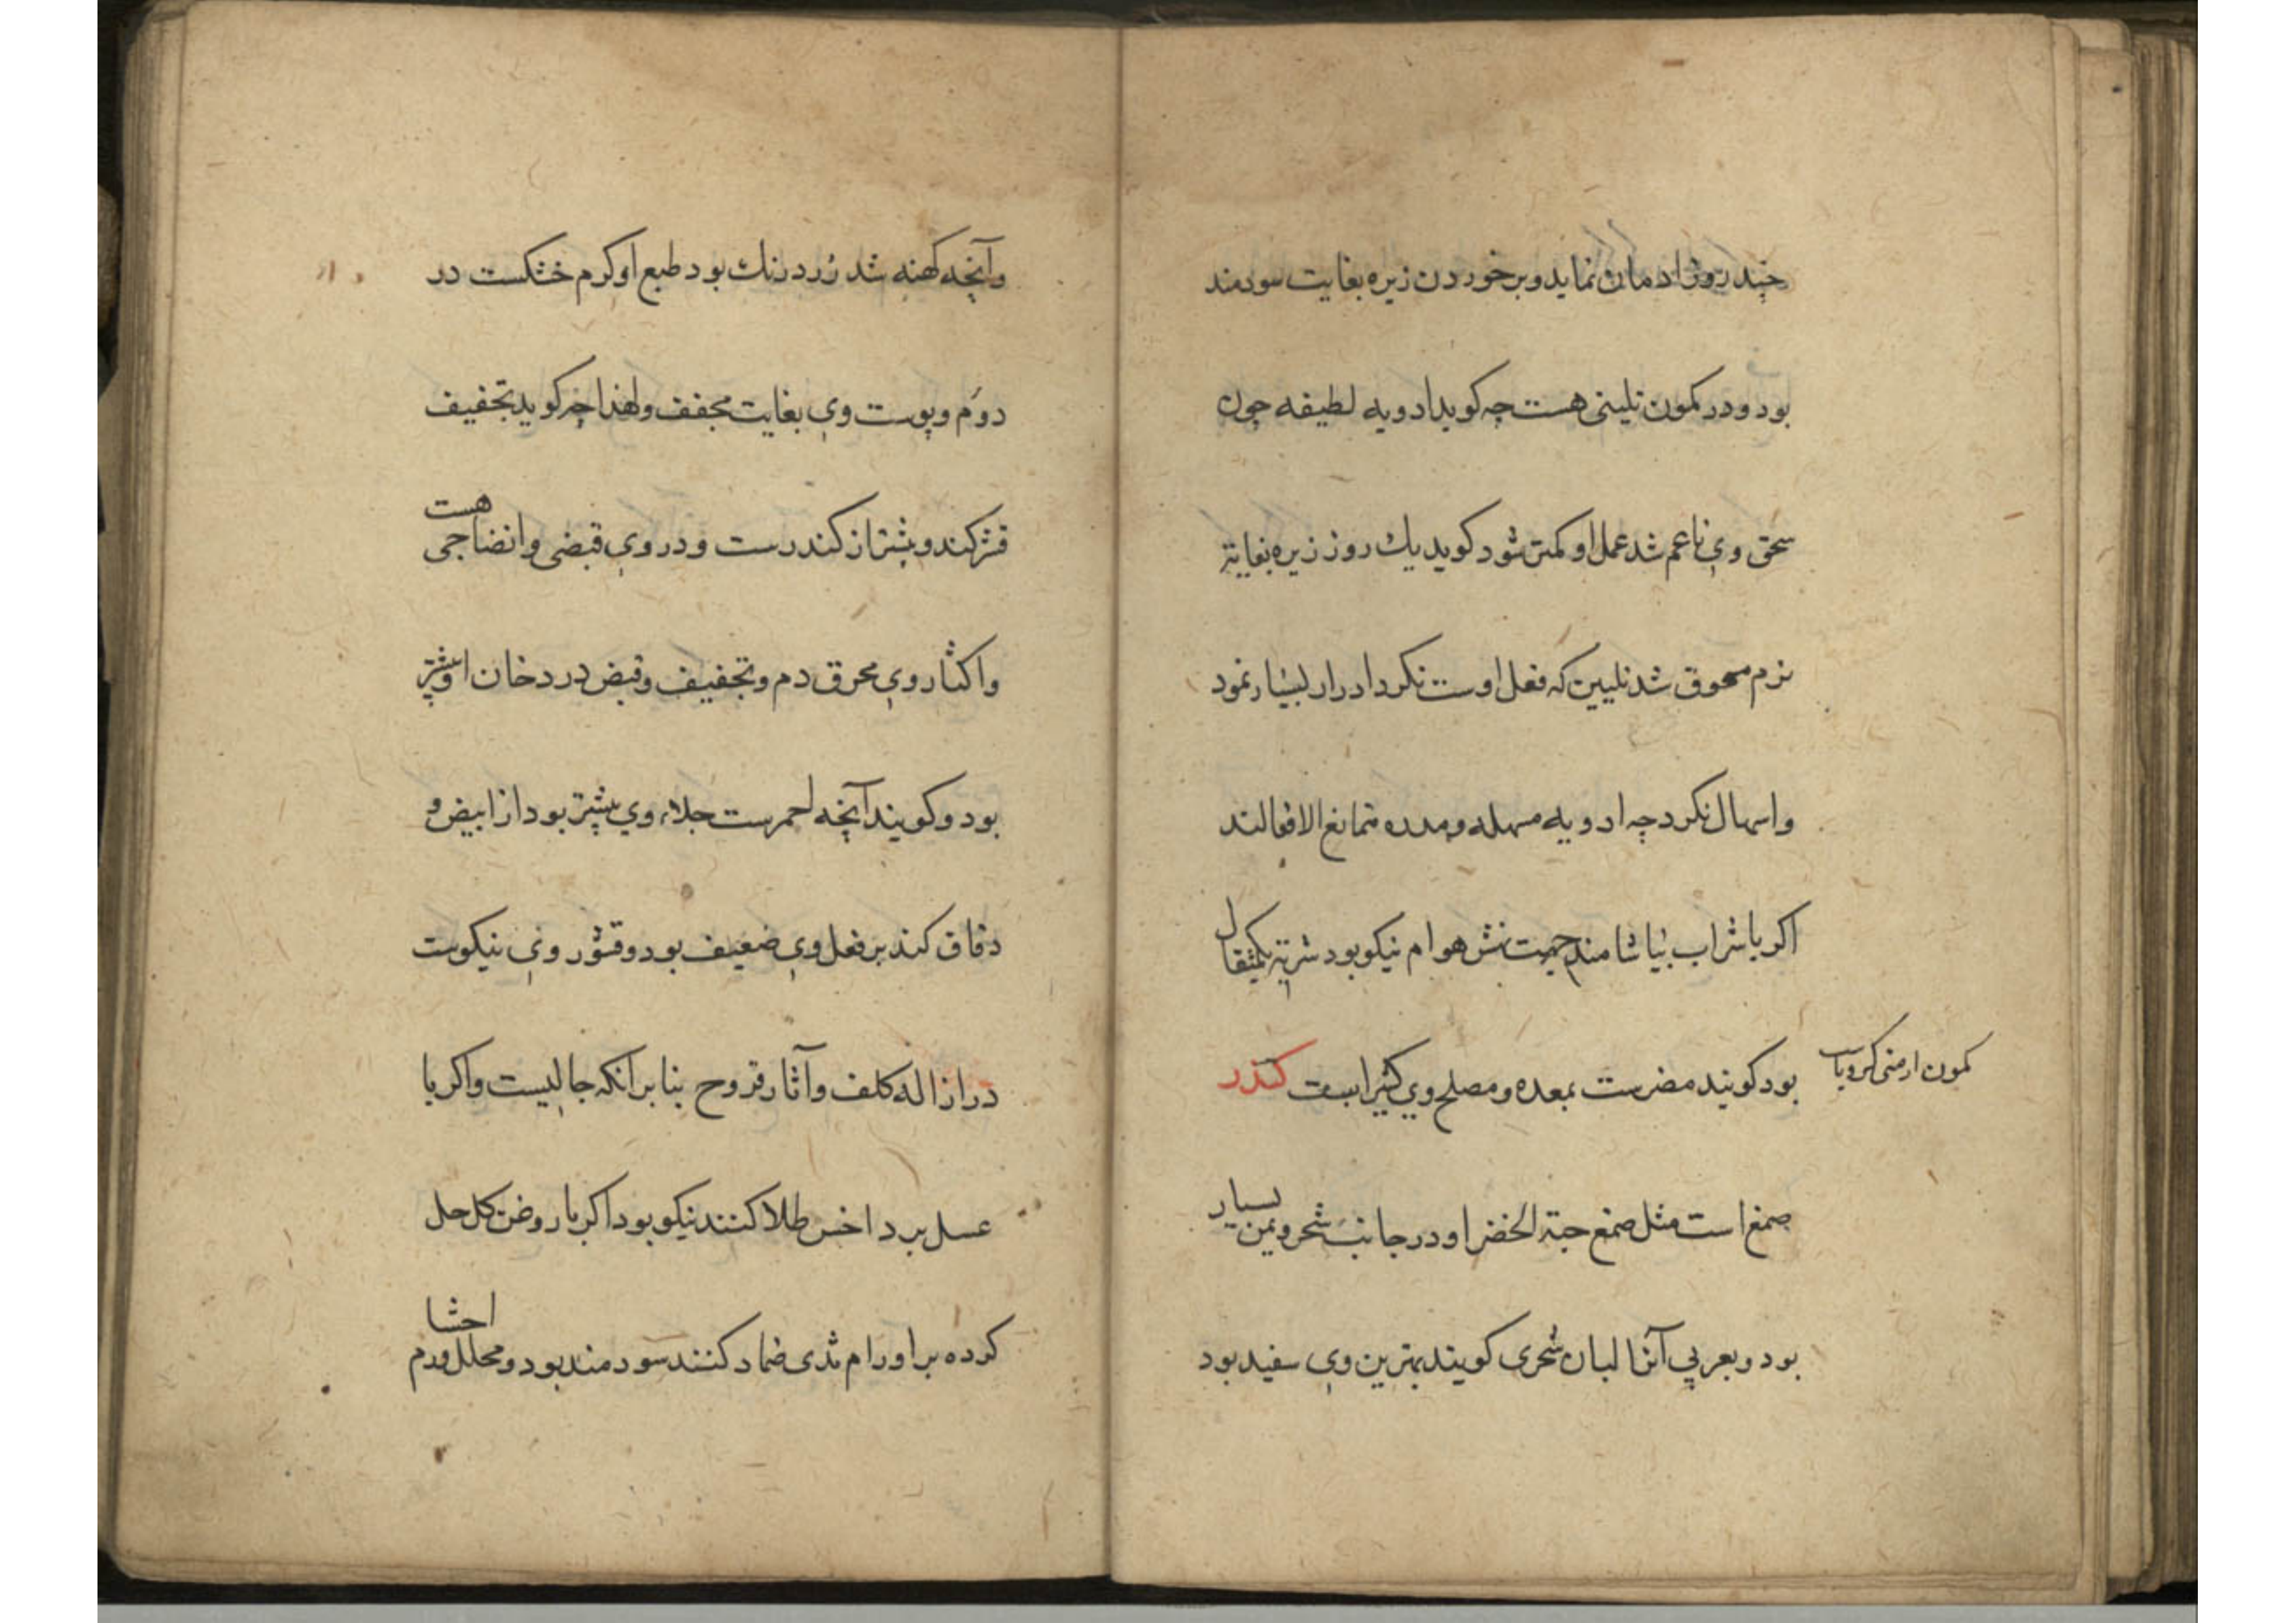 چند روز ادمان نماید و بر خوردن زیره بغایت سودمند
بود و در کمون تلیینی هست چه کوید ادویه لطیفه چون
سحق وی ناعم شد عمل او کمتر شود کوید یك روز زیره بغایة
نرم مسحوق شد تلیین که فعل اوست نکرد ادرار بسیار نمود
و اسهال نکرد چه ادویه مسهله و مدره متمانع الافعالند
اکر با شراب بیاشامند جهت نهش هوام نیکو بود شربة یکمثقال
بود کویند مضرست بمعده و مصلح وی کثیراست کندر
کمون ارمنی کرویاست
صمغ است مثل صمغ حبة الخضرا و در جانب شحر و یمن بسیار
بود و بعربی آنرا لبان شحری کویند بهترین وی سفید بود
و آنچه کهنه شد زرد رنك بود طبع او کرم خشکست در
دوم و پوست وی بغایت مجفف و لهذا چه کوید تجفیف
قشر کندر بیشتر از کندرست و در وی قبضی و انضاجی هست
و اکثار وی محرق دم و تجفیف و قبض در دخان او بیشتر
بود و کویند آنچه احمرست جلاء وی بیشتر بود از ابیض و
دقاق کندر فعل وی ضعیف بود و قشور وی نیکوست
در ازاله کلف و آثار قروح بنا بر آنکه جالیست و اکر با
عسل بر داخس طلا کنند نیکو بود اکر با روغن کل حل
کرده بر اورام ثدی ضماد کنند سودمند بود و محلل ورم احشا